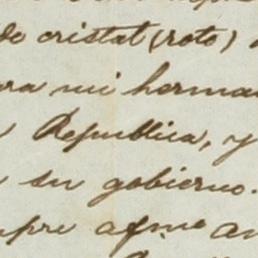 de cristal (roto)
ra mi herma
Republica, y
su gobierno.
pre afmo an